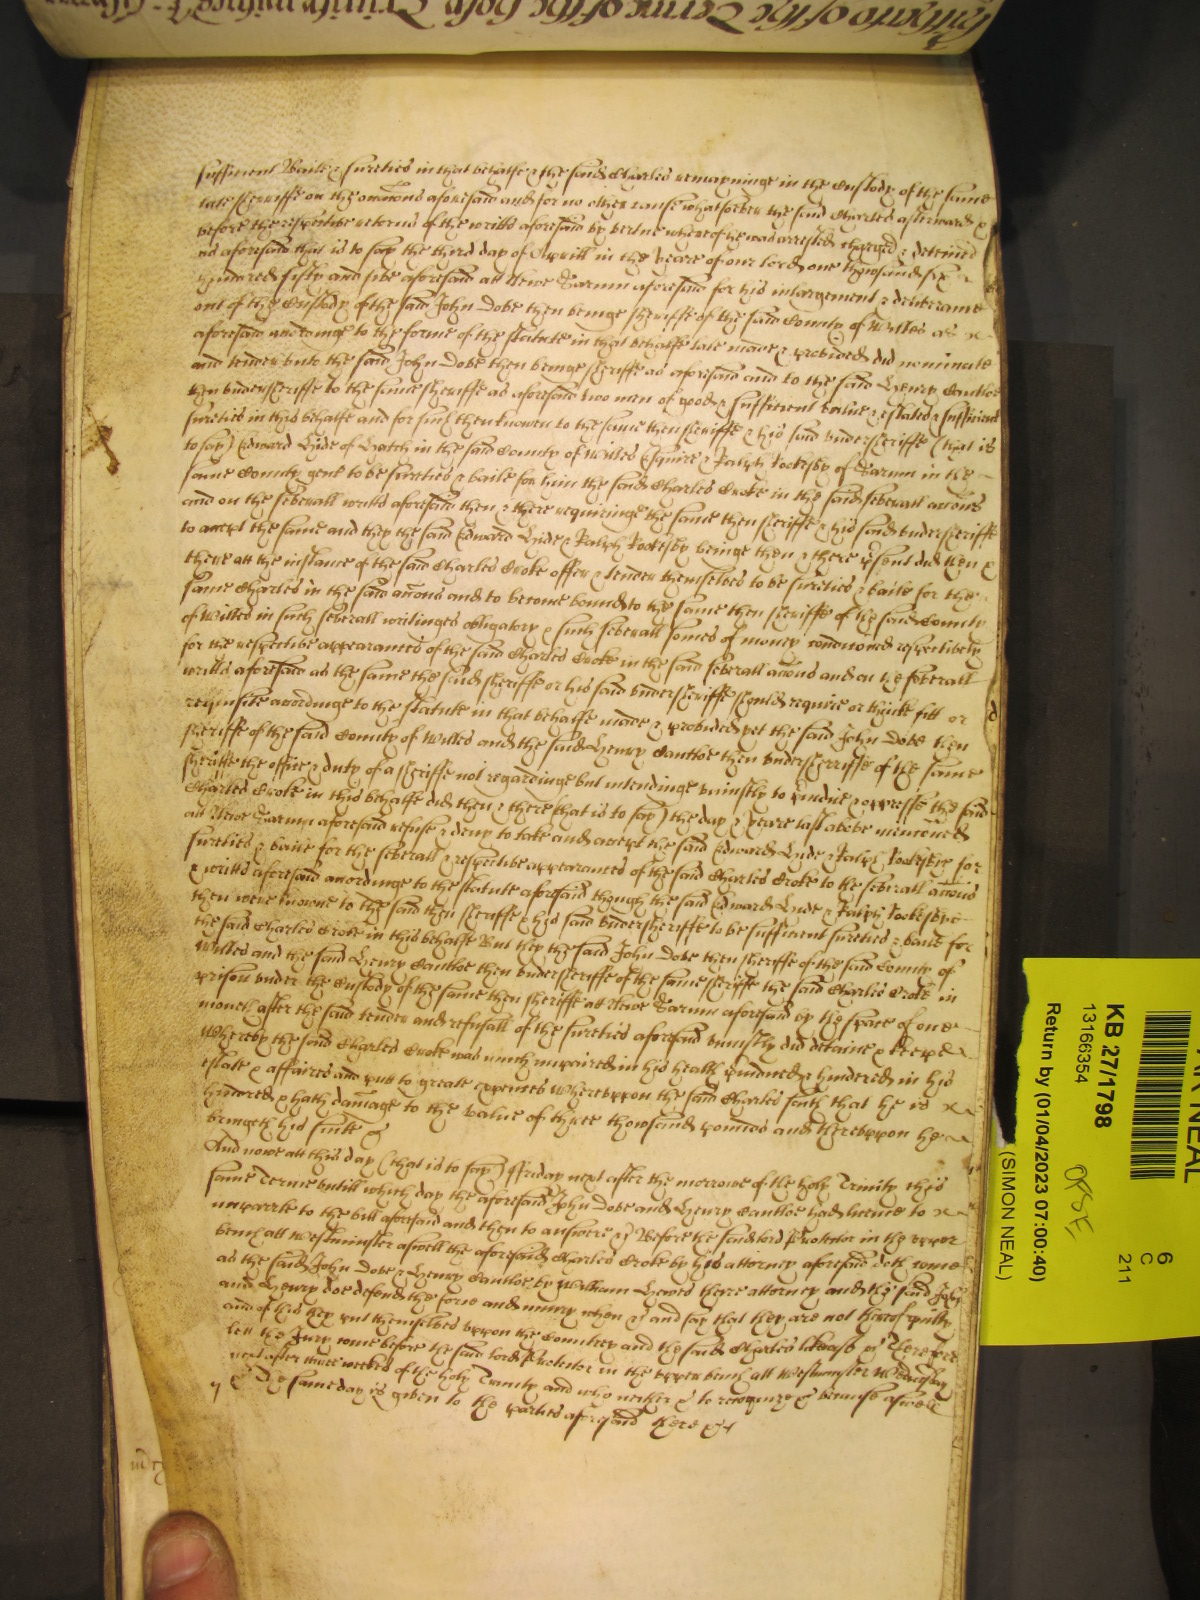 sufficient Baile & sureties in that behalfe & the said Charles remayninge in the Custody of the same
late Sheriffe on the accons aforesaid and for no other cause whatsoever the said Charles afterwards &
before the respective retorns of the writts aforesaid by vertue whereof he was arrested charged & deteined
as aforesaid that is to say the third day of Aprill in the yeare of our lord one thowsand six
hundred fifty and five aforesaid att Newe Sarum aforesaid for his inlargement & deliverance
out of the Custody of the said John Dove then beinge Sheriffe of the said County of Wiltes as
aforesaid accordinge to the forme of the statute in that behalfe late made & provided did nominate
and tender unto the said John Dove then beinge sheriffe as aforesaid and to the said Henry
then undersheriffe to the same sheriffe as aforesaid two men of good & sufficient value & estates & sufficient
sureties in this behalfe and for such then knowen to the same then sheriffe & his said undersheriffe (that is
to say) Edward Hyde of Hatch in the said County of Wiltes Esquire & Ralph Rokesby of Sarum in the
same County gent to be sureties & baile for him the said Charles Croke in the said severall accons
and on the severall writts aforesaid then & there requiringe the same then sheriffe & his said undersheriffe
to accept the same and they the said Edward Hyde & Ralph Rokesby beinge then & there psent did then &
there att the instance of the said Charles Croke offer & tender themselves to be sureties & baile for the
same Charles in the said accons and to become bound to the same then sheriffe of the said County
of Wiltes in such severall writinges obligatory & such severall somes of money condicioned respectively
for the respective appearances of the said Charles Croke in the said severall accons and on the severall
writts aforesaid as the same the said sheriffe or his said undersheriffe should require or thinke fitt or
requisite accordinge to the statute in that behalfe made & provided yet the said John Dove then
sheriffe of the said County of Wiltes and the said Henry then undersheriffe of the same
sheriffe the office & duty of a sheriffe not regardinge but intendinge uniustly to & oppresse the said
Charles Croke in this behalfe did then & there (that is to say) the day & yeare last above mencioned
att Newe Sarum aforesaid refuse & deny to take and accept the said Edward Hyde & Ralph Rokesby for
sureties & baile for the severall & respective appearances of the said Charles Croke to the severall accons
& writts aforesaid accordinge to the statute aforesaid though the said Edward Hyde & Ralph Rokesby
then were knowne to the said then sheriffe & his said undersheriffe to be sufficient sureties & baile for
the said Charles Croke in this behalfe But they the said John Dove then sheriffe of the said County of
Wiltes and the said Henry then undersheriffe of the same sheriffe the said Charles Croke in
prison under the Custody of the same then sheriffe att Newe Sarum aforesaid by the space of one
moneth after the said tender and refusall of the sureties aforesaid uniustly did detaine & keepe
Whereby the said Charles Croke was much impaired in his health & hindered in his
estate & affaires and put to greate expences Whereuppon the said Charles saith that he is
& hath damage to the value of three thowsand pounds and thereuppon he
bringeth his suite &c
And nowe att this day (that is to say) Friday next after the morrowe of the holy Trinity this
same Terme untill which day the aforesaid John Dove and Henry had licence to
imparle to the bill aforesaid and then to answere &c Before the said lord Protector in the upper
bench att Westminster aswell the aforesaid Charles Croke by his attorney aforesaid doth come
as the said John Dove & Henry by William there attorney and the said John
and Henry doe defend the force and iniury when &c and say that they are not thereof guilty
and of this they put themselves uppon the Countrey and the said Charles likewise &c Therefore
lett the Jury come before the said lord Protector in the upper bench att Westminster Wednesday
next after three weekes of the holy Trinity and who neither &c to recognize &c because aswell
&c The same day is given to the parties aforesaid there &c
NEAL
KB 27/1798
13166354
Return by (01/04/2023 07:00:40)
(SIMON NEAL)
6
C
211